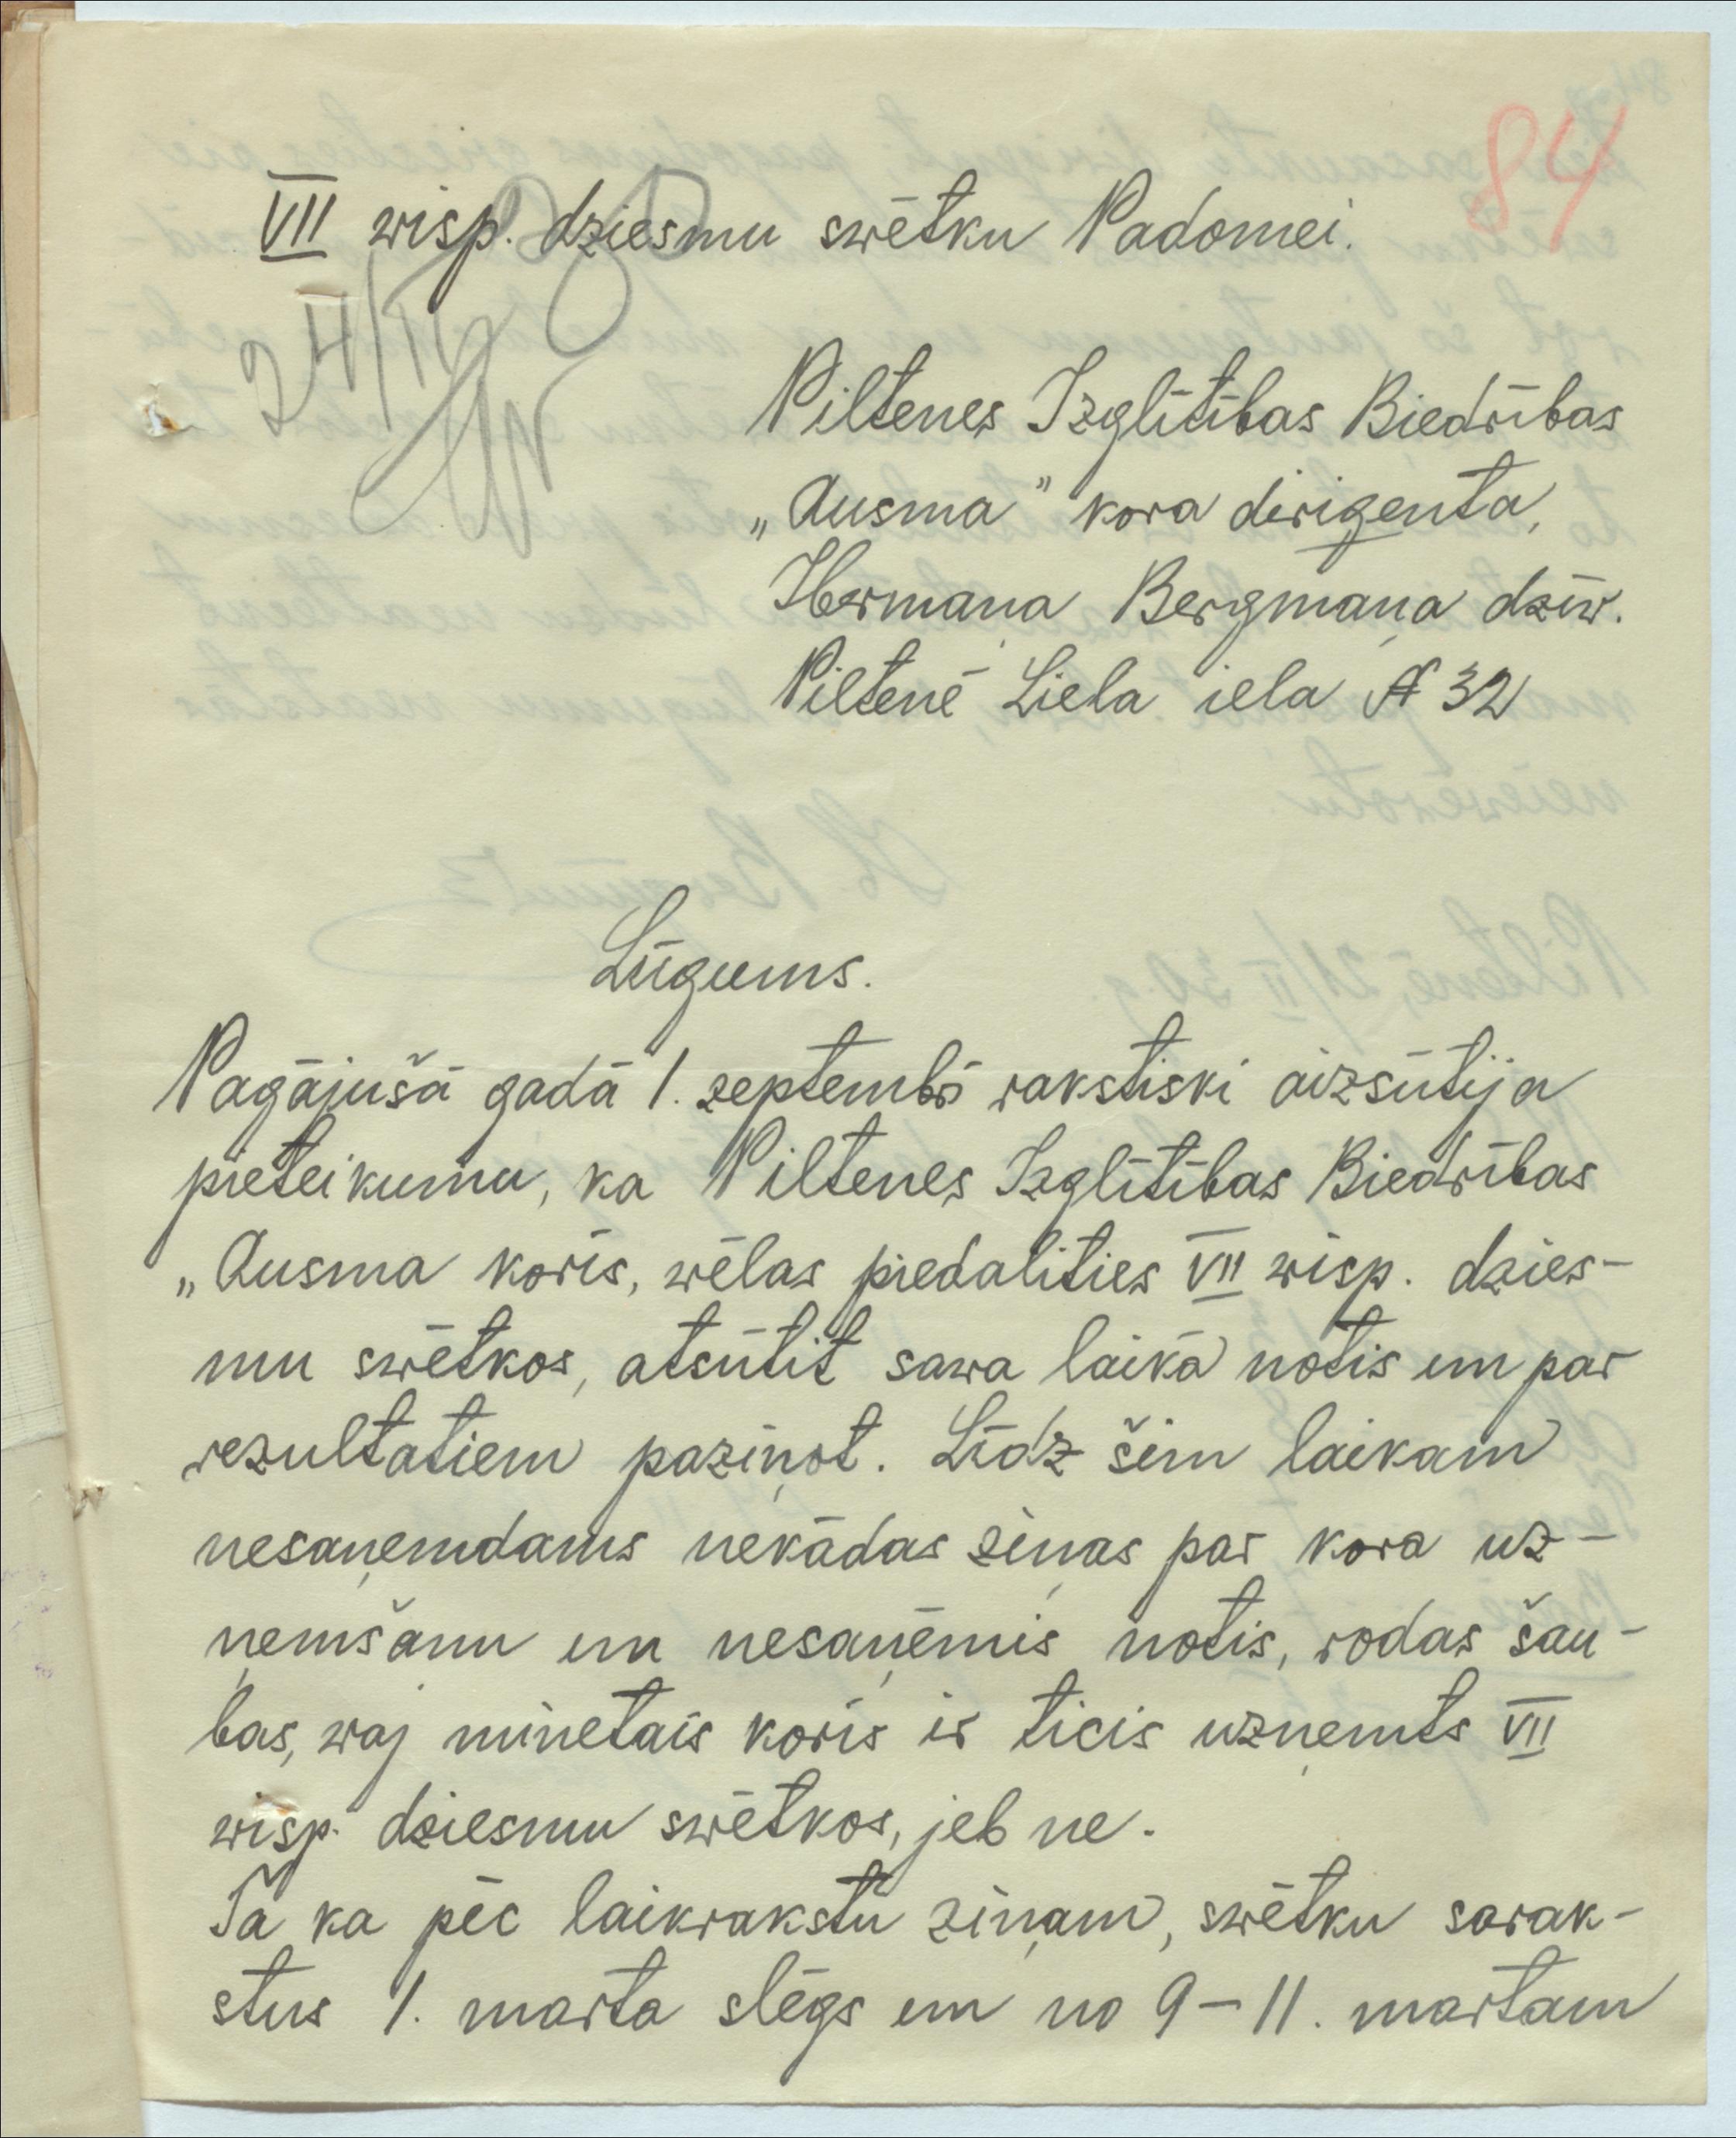 84
VII wisp. dziesmu swētku Padomei.
24/II
Piltenes Izglītības Biedrības
„Ausma" kora dirigenta,
Hermaņa Bergmaņa dzīw.
Piltenē Liela iela № 32
Lūgums.
Pagājušā gadā 1. zeptembŗī rakstiski aizsūtīja
pieteikumu, ka Piltenes Izglītības Biedrības
„Ausma koris, wēlas piedalīties VII wisp. dzies-
mu swētkos, atsūtīt sawa laikā notis un par
rezultatiem paziņot. Līdz šim laikam
nesaņemdams nekādas ziņas par kora uz-
ņemšanu un nesaņēmis notis, rodas šau-
bas, waj minetais koris ir ticis uzņemts VII
wisp. dziesmu swētkos, jeb ne.
Tā ka pēc laikrakstu ziņam, swētku sarak-
stus 1. marta slēgs un no 9-11. martam